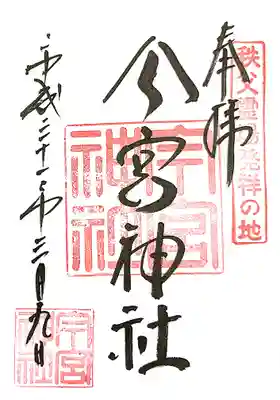 秩父霊場発祥の地
奉拝
今宮神社
今宮神社
平成 十一年 月九日
今宮神社